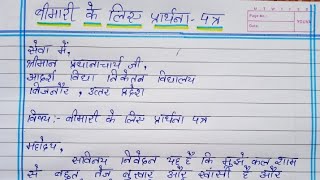 बीमारी के लिए प्रार्थना-पत्र
सेवा में,
श्रीमान प्रधानाचार्य जी,
आदर्श विद्या निकेतन विद्यालय
बिजनौर, उत्तर प्रदेश
विषय:- बीमारी के लिए प्रार्थना पत्र
महोदय,
सविनय निवेदन यह है कि मुझे कल शाम
से बहुत तेज बुखार और खांसी है और